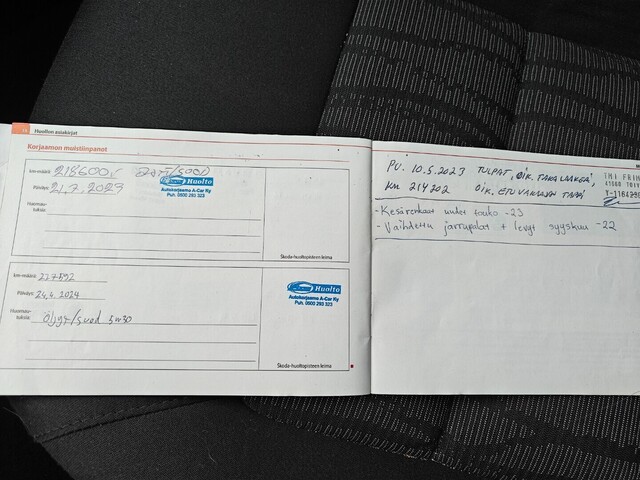 18 Huollon asiakirjat
Korjaamon muistiinpanot
km-määrä: 218600
Päiväys: 21.7.2023
Huomau-
tuksia:
Huolto
Autokorjaamo A-Car Ky
Puh. 0600 293 323
Škoda-huoltopisteen leima
km-määrä: 227592
Päiväys: 24.4.2024
Huomau-
tuksia: Öljyt/suod 5w30
Huolto
Autokorjaamo A-Car Ky
Puh. 0600 293 323
Škoda-huoltopisteen leima
PV. 10.5.2023 TULPAT, OIK. TAKALAAKERI,
KM 214302 OIK. ETUVAKAAJAN
- Kesärenkaat uudet touko -23
- Vaihdettu jarrupalat + levyt syyskuu -22